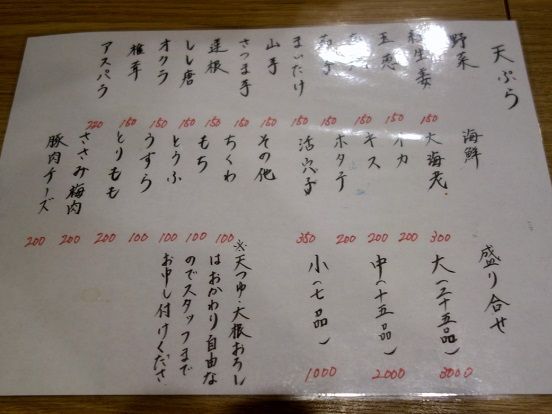 天ぷら
野菜
生姜 150
玉葱 150
150
150
まいたけ 150
山芋 150
さつま芋 150
蓮根 150
しし唐 150
オクラ 150
椎茸 150
アスパラ 220
海鮮
大海老 300
イカ 200
キス 200
ホタテ 200
活穴子 350
その他
ちくわ 100
もち 100
とうふ 100
うずら 100
とりもも 200
ささみ梅肉 200
豚肉チーズ 200
盛り合せ
大(二十五品) 3000
中(十五品) 2000
小(七品) 1000
※天つゆ・大根おろし
はおかわり自由な
のでスタッフまで
お申し付けくださ